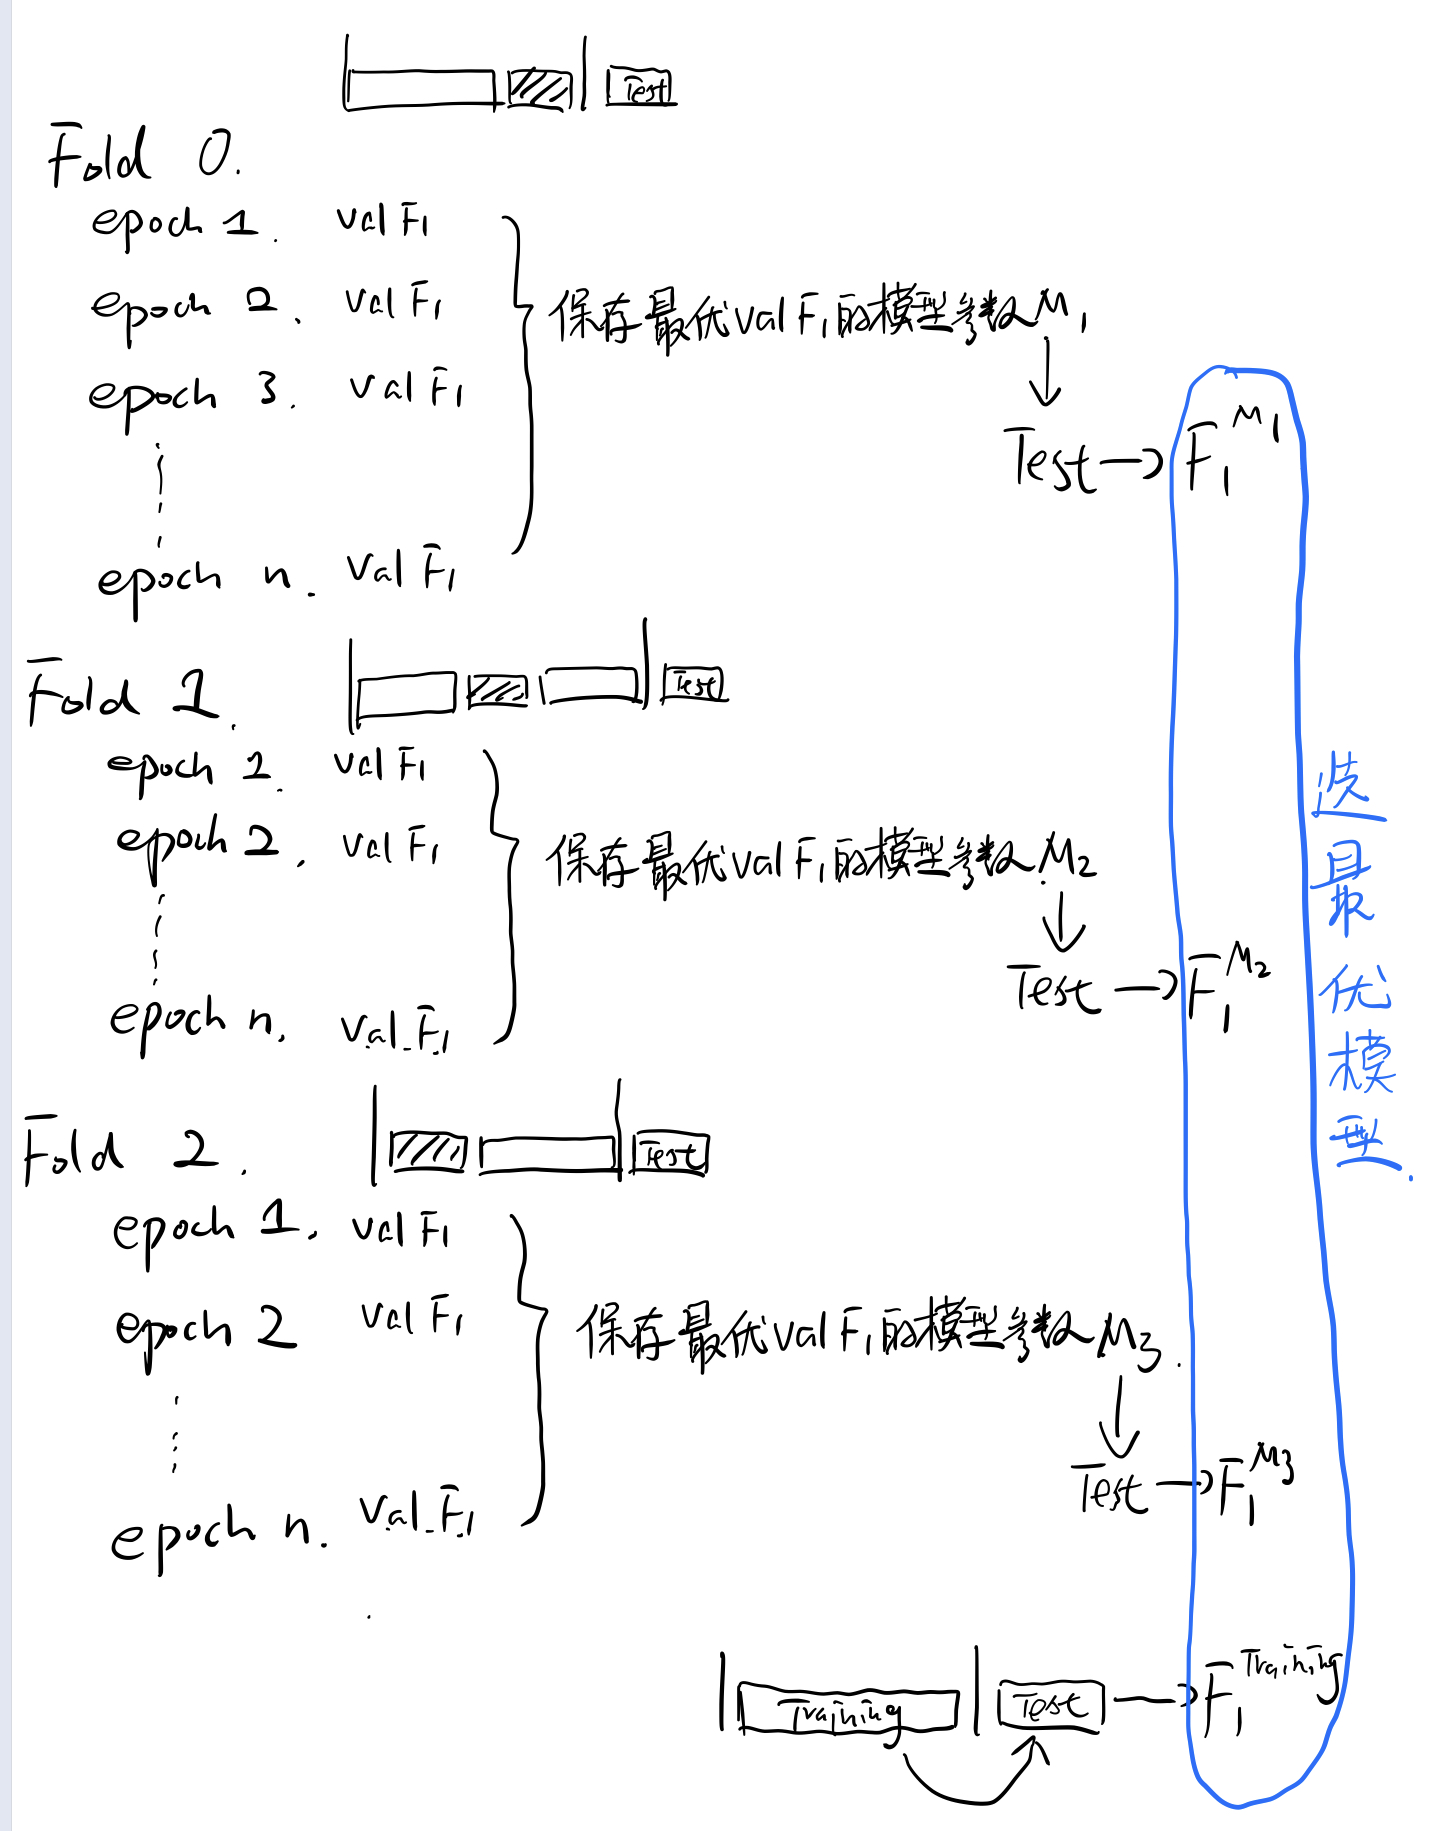 Test
Fold 0.
epoch 1. val F1
epoch 2. val F1
epoch 3. val F1
epoch n. val F1
保存最优val F1的模型参数M1
Test → F1^M1
Fold 1.
Test
epoch 1. val F1
epoch 2. val F1
epoch n. val F1
保存最优val F1的模型参数M2
Test → F1^M2
Fold 2.
Test
epoch 1. val F1
epoch 2 val F1
epoch n. val F1
保存最优val F1的模型参数M3.
Test → F1^M3
Training Test → F1^Training
选最优模型.